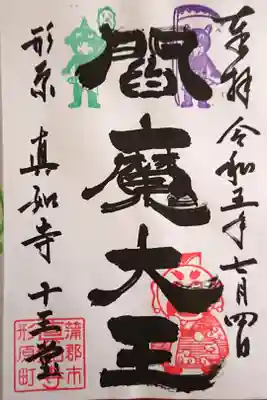 奉拝 令和五年七月四日
閻魔大王
形原 真如寺 十王堂
蒲郡市
形原町